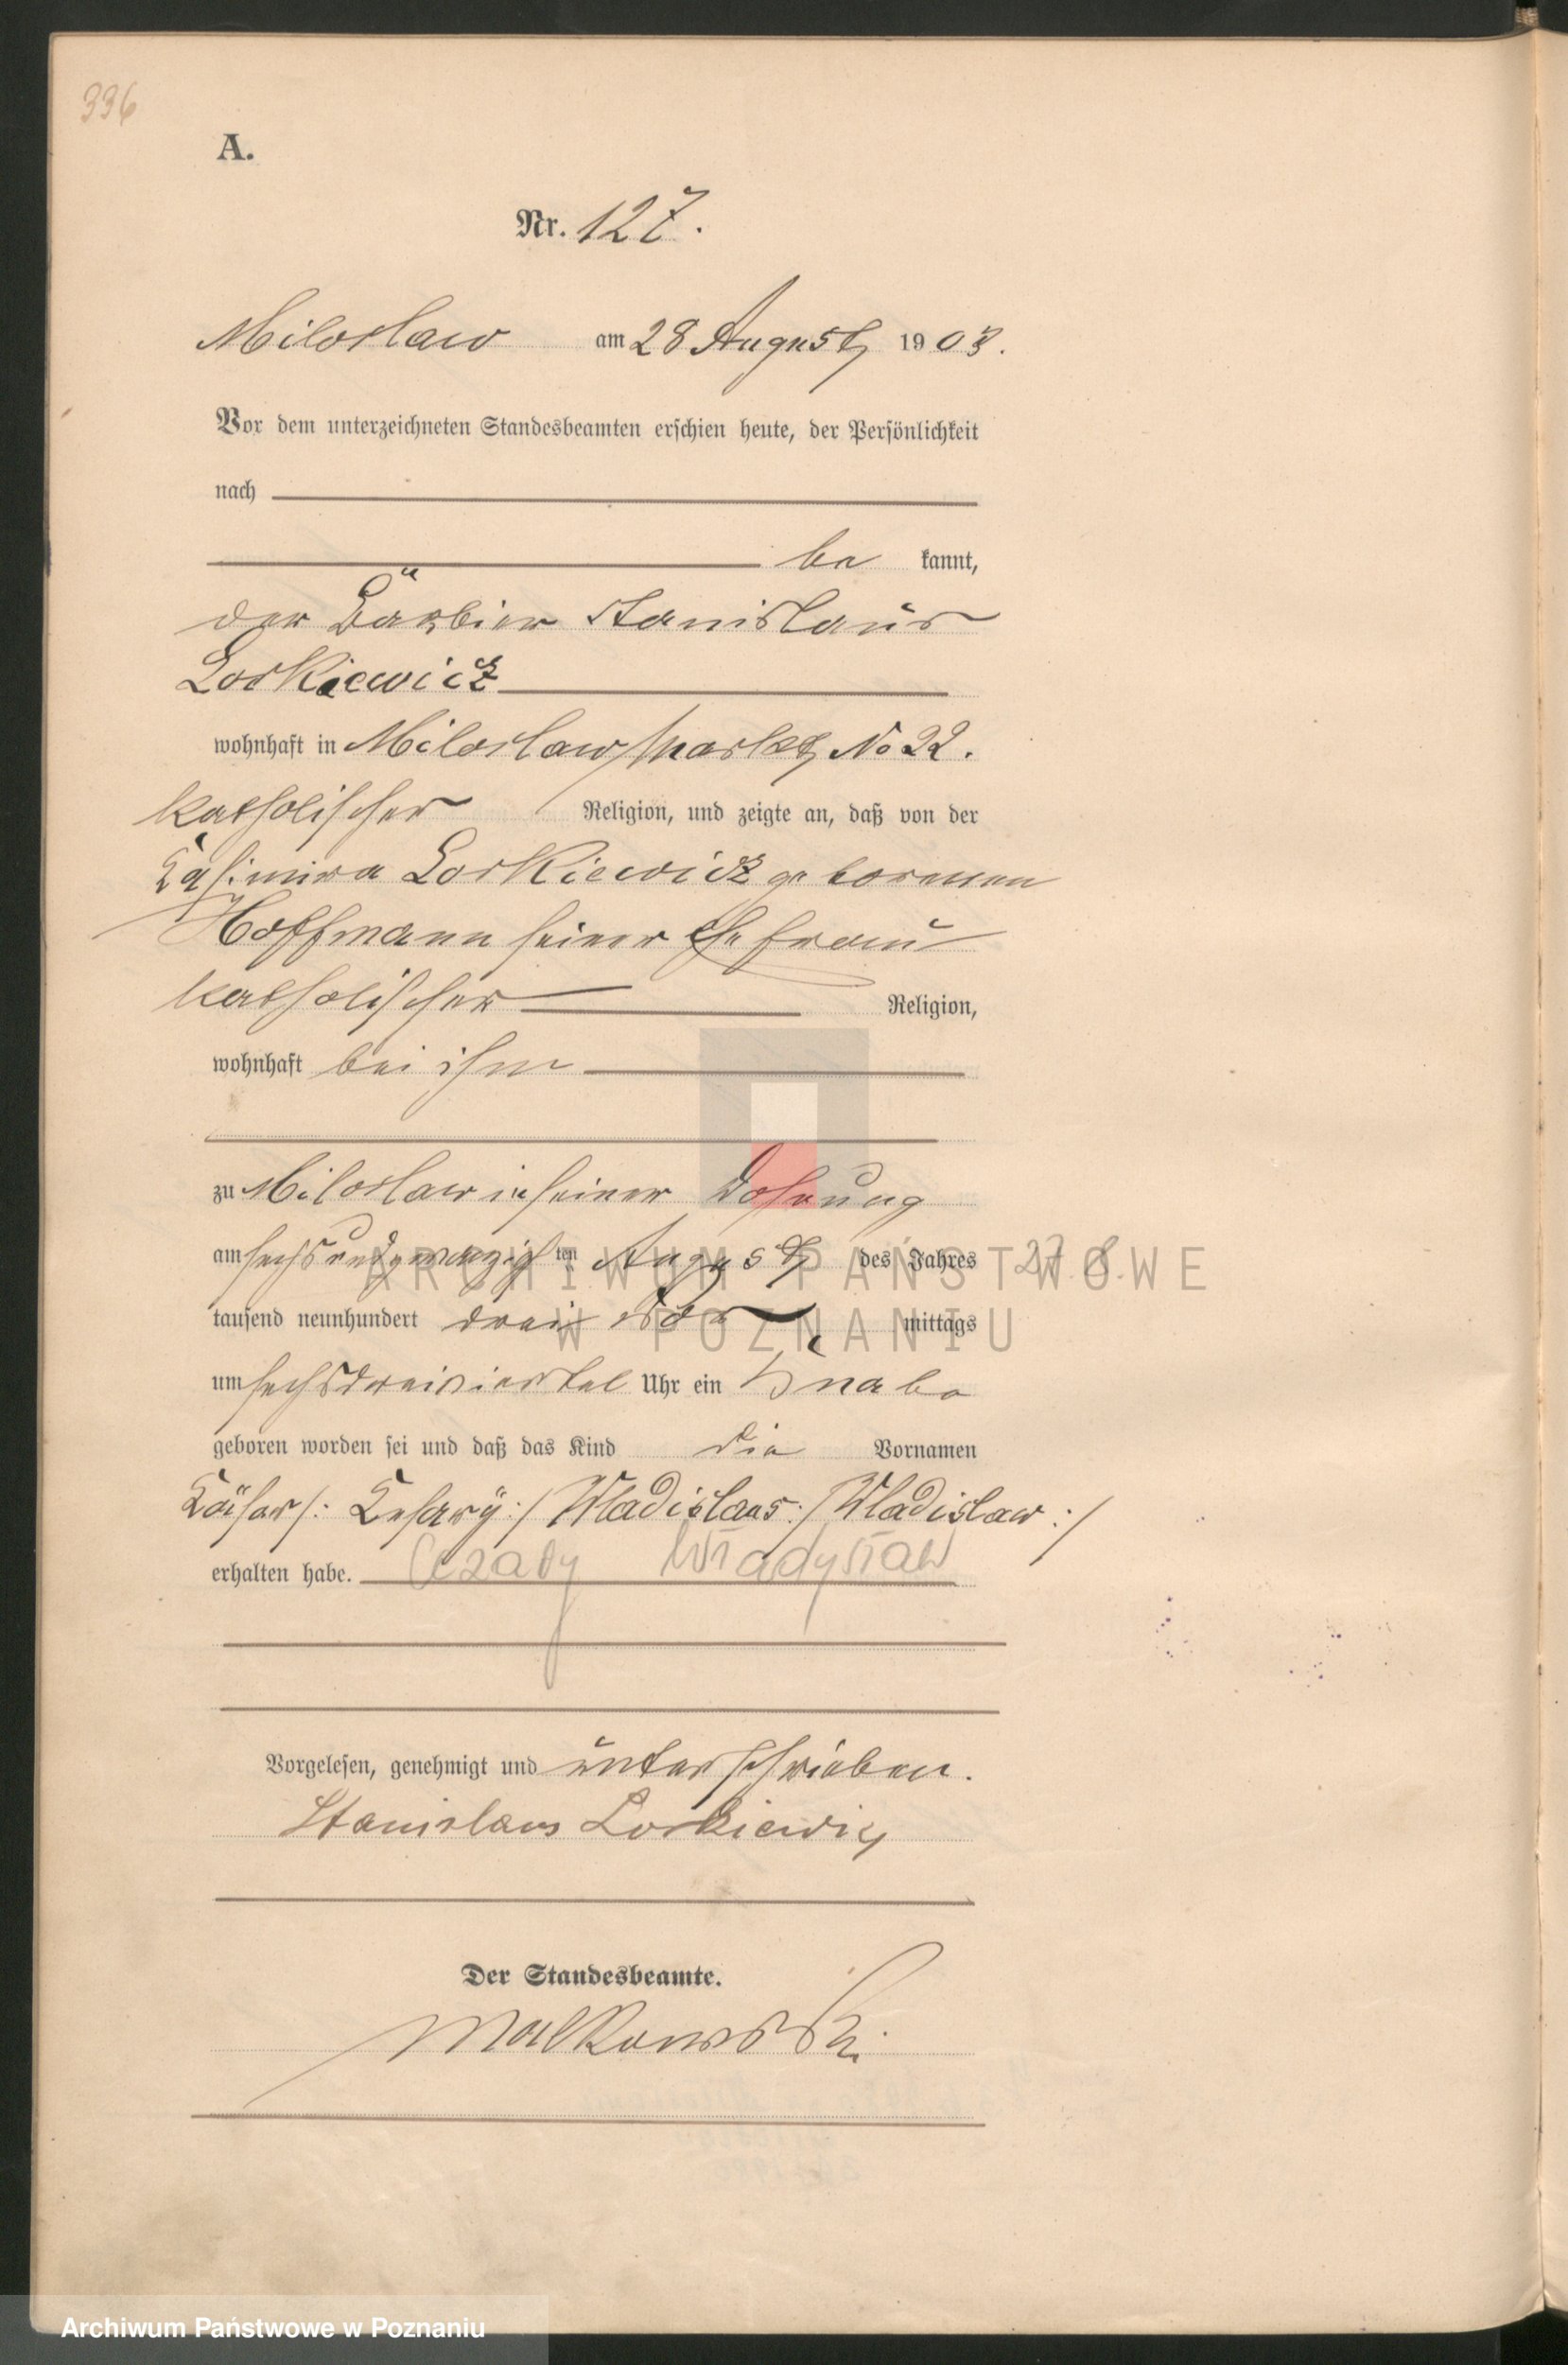 336
A.
Nr. 127.
Miloslaw am 28 August 1903.
Vor dem unterzeichneten Standesbeamten erschien heute, der Persönlichkeit
nach
be kannt,
der Barbier Stanislaus
Lorkiewicz
wohnhaft in Miloslaw, Markt No 22.
katholischer Religion, und zeigte an, daß von der
Casimira Lorkiewicz geborenen
Hoffmann seiner Ehefrau
katholischer Religion,
wohnhaft bei ihm
zu Miloslaw in seiner Wohnung
am sechsundzwanzigsten August des Jahres 27. 8.
tausend neunhundert drei Vor mittags
um sechsdreiviertel Uhr ein Knabe
geboren worden sei und daß das Kind die Vornamen
Cäsar /: Cesary :/ Wladislaus /: Wladislaw :/
erhalten habe. Cezary Władysław
Vorgelesen, genehmigt und unterschrieben.
Stanislaus Lorkiewicz
Der Standesbeamte.
Malkowski.
ARCHIWUM PAŃSTWOWE
W POZNANIU
Archiwum Państwowe w Poznaniu